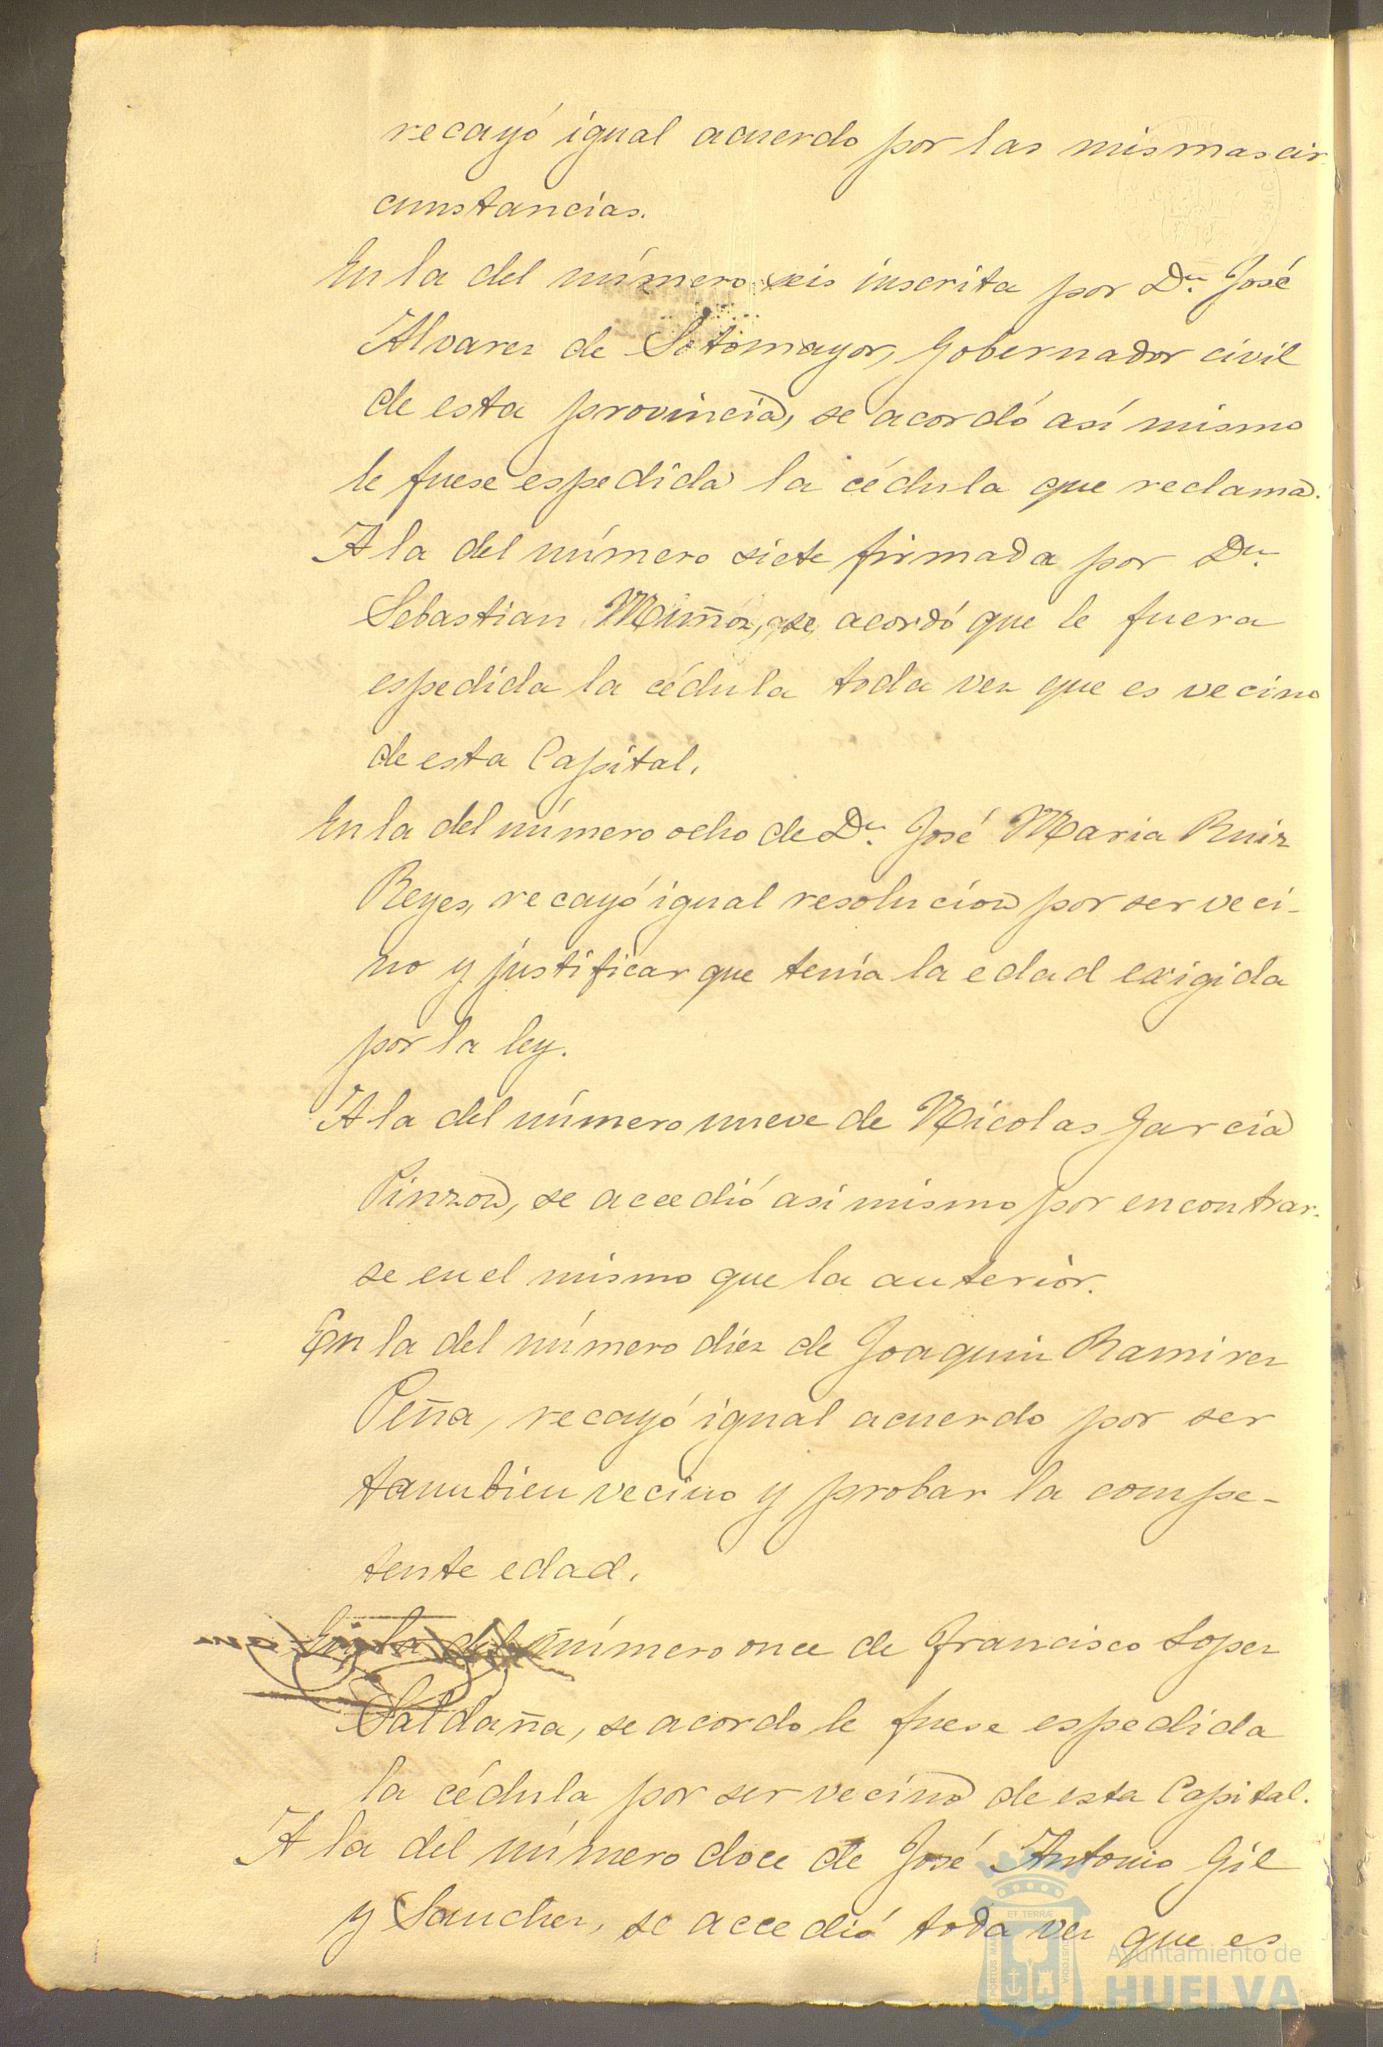 recayó igual acuerdo por las mismas cir
cunstancias.
En la del número seis inscrita por Dn. José
Alvarez de Sotomayor, Gobernador civil
de esta provincia, se acordó así mismo
le fuese espedida la cédula que reclama.
A la del número siete firmada por Dn.
Sebastian Muñoz, se acordó que le fuera
espedida la cédula toda vez que es vecino
de esta Capital.
En la del número ocho de Dn. José Maria Ruiz
Reyes, recayó igual resolucion por ser veci-
no y justificar que tenía la edad exigida
por la ley.
A la del número nueve de Nicolas Garcia
Pinzon, se accedió asi mismo por encontrar-
se en el mismo que la anterior.
En la del número diez de Joaquin Ramirez
Peña, recayó igual acuerdo por ser
tambien vecino y probar la compe-
tente edad.
En la del número once de Francisco Lopez
Saldaña, se acordo le fuese espedida
la cédula por ser vecino de esta Capital.
A la del número doce de José Antonio Gil
y Sanchez, se accedió toda vez que es
Ayuntamiento de
HUELVA